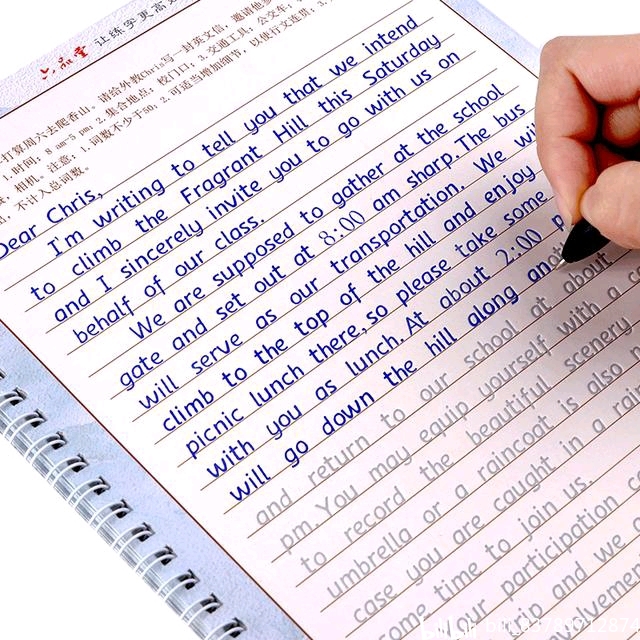 六品堂 让练字更高
打算周六去爬香山。请给外教Chris写一封英文信，邀请他
1.时间：8 am-5 pm；2.集合地点：校门口；3.交通工具：公交车；
相机。注意：1.词数不少于50；2.可适当增加细节，以使行文连贯；3.
不计入总词数。
Dear Chris,
I'm writing to tell you that we intend
to climb the Fragrant Hill this Saturday
and I sincerely invite you to go with us on
behalf of our class.
We are supposed to gather at the school
gate and set out at 8:00 am sharp. The bus
will serve as our transportation. We
climb to the top of the hill and enjoy
picnic lunch there, so please take some
with you as lunch. At about 2:00
will go down the hill along
and return to our school at about
pm. You may equip yourself with a
to record the beautiful scenery
umbrella or a raincoat is also
case you are caught in a
some time to join us.
our participation
and we